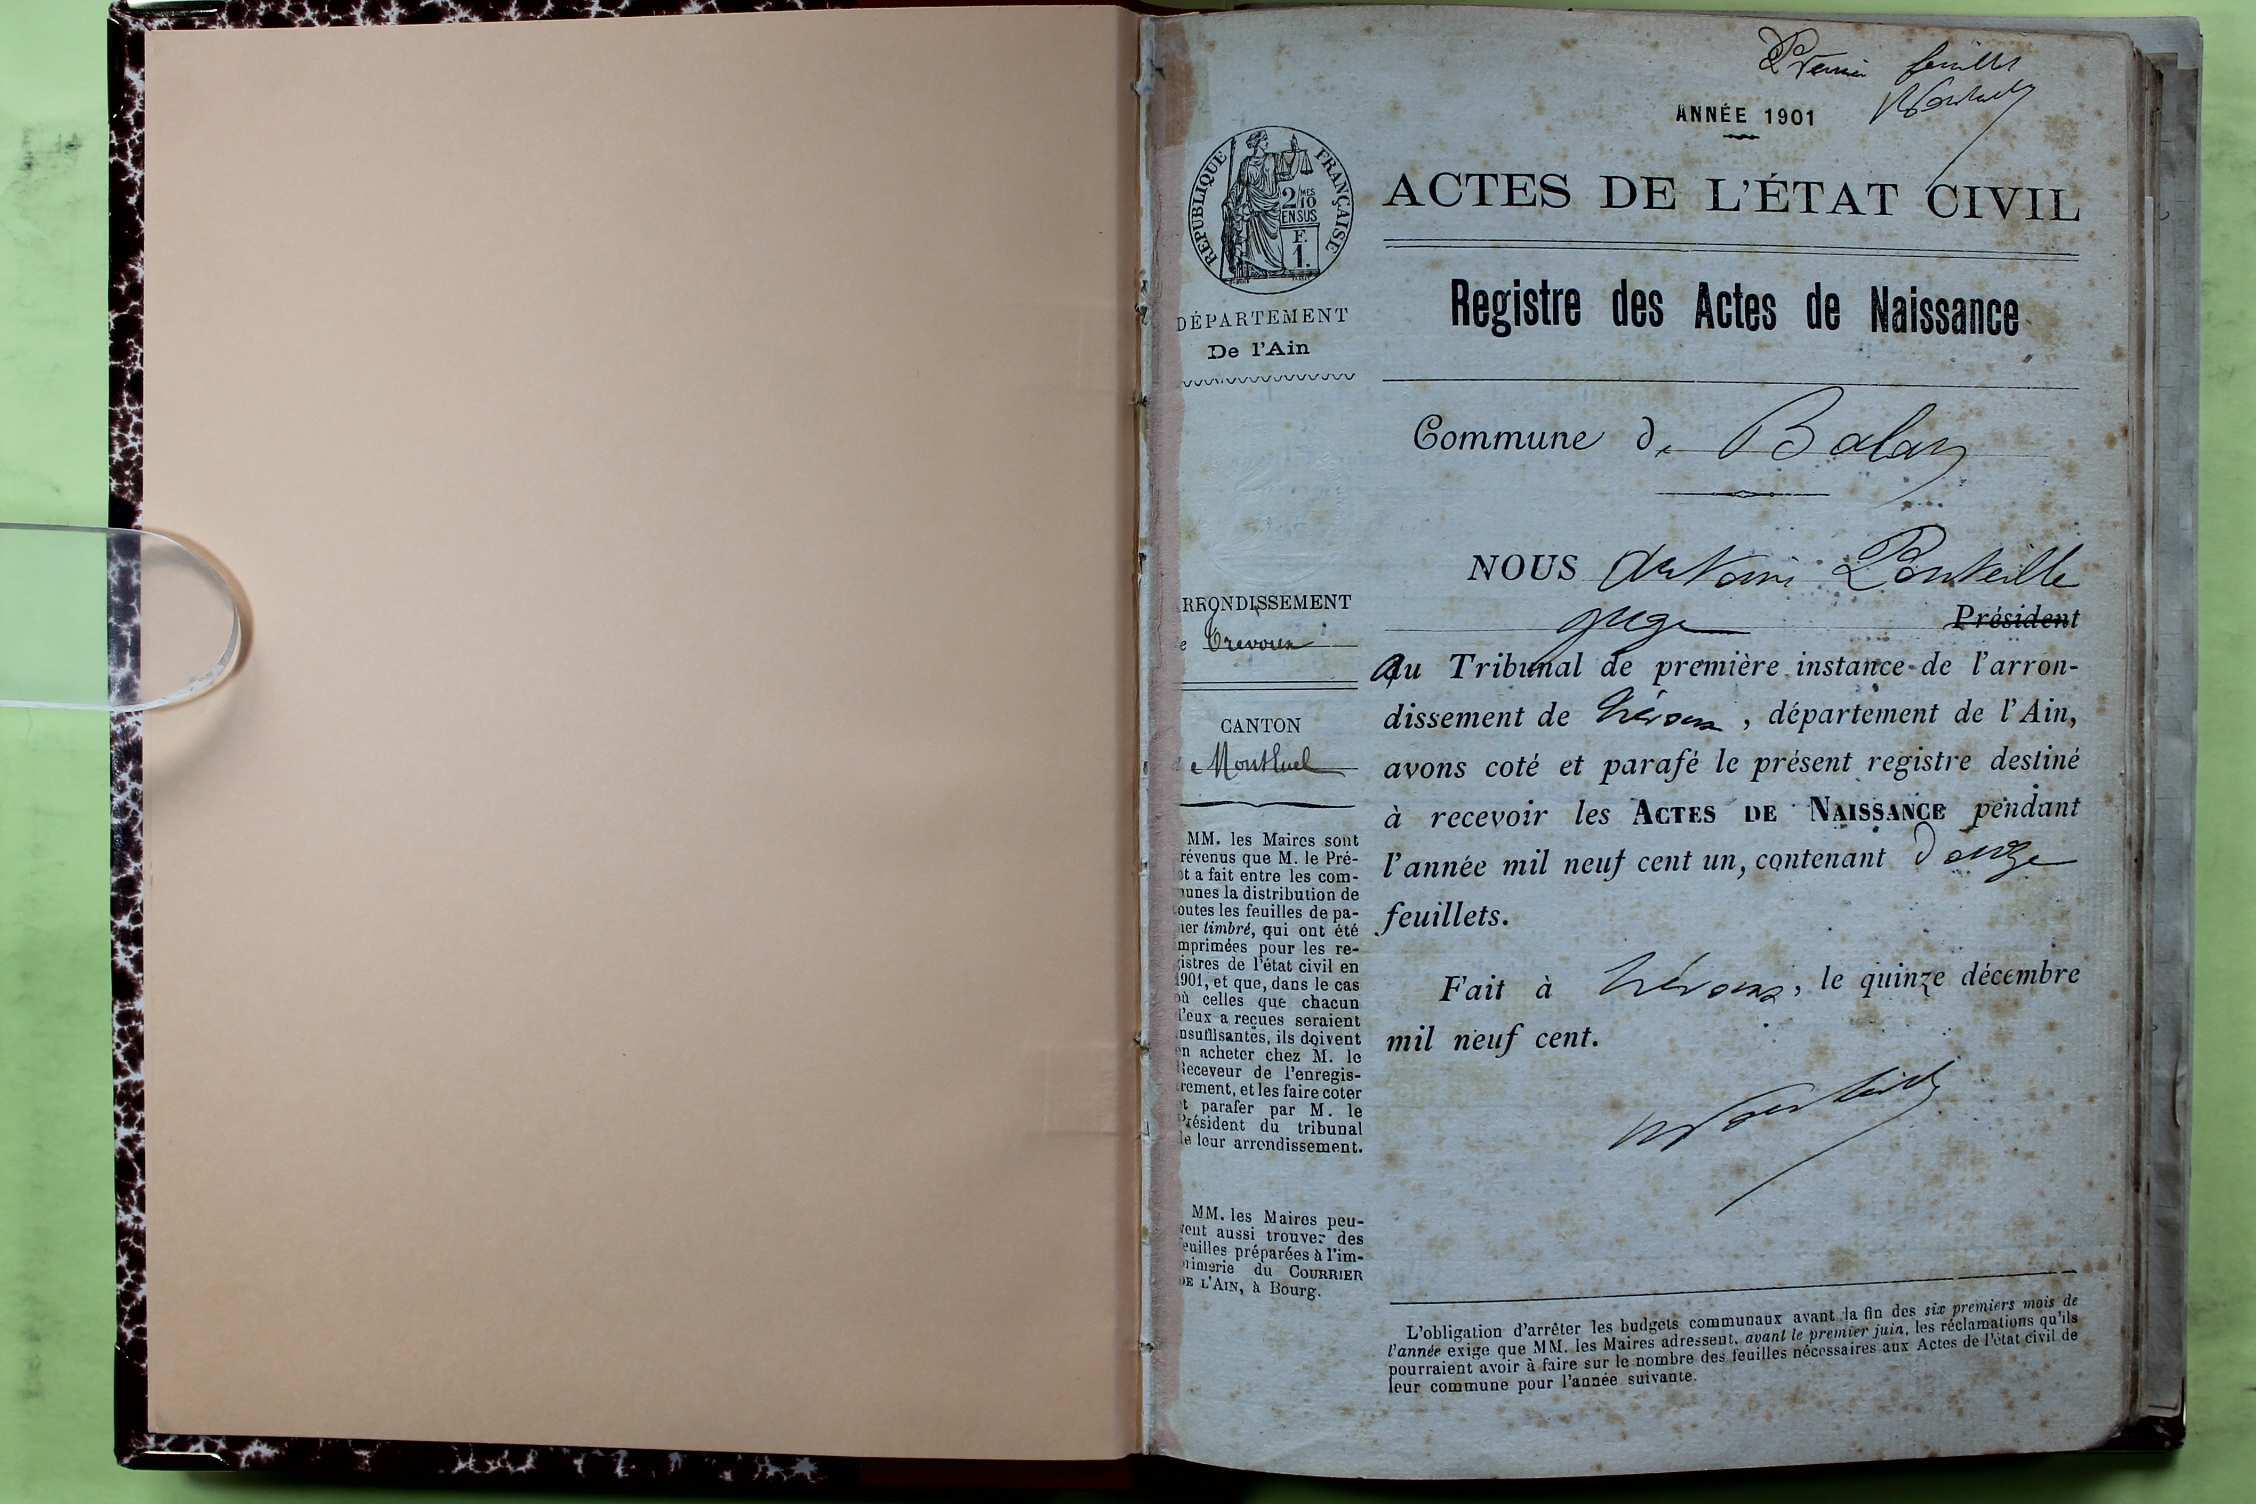 Premier feuillet
ANNÉE 1901
ACTES DE L'ÉTAT CIVIL
Registre des Actes de Naissance
RÉPUBLIQUE FRANÇAISE
2/10 MES
EN SUS
F.
1.
DÉPARTEMENT
De l'Ain
RRONDISSEMENT
e Trévoux
CANTON
e Montluel
MM. les Maires sont
révenus que M. le Pré-
ot a fait entre les com-
unes la distribution de
outes les feuilles de pa-
ier timbré, qui ont été
mprimées pour les re-
istres de l'état civil en
1901, et que, dans le cas
où celles que chacun
d'eux a reçues seraient
nsuffisantes, ils doivent
en acheter chez M. le
Receveur de l'enregis-
rement, et les faire coter
t parafer par M. le
Président du tribunal
de leur arrondissement.
MM. les Maires peu-
vent aussi trouver des
feuilles préparées à l'im-
primerie du COURRIER
DE L'AIN, à Bourg.
Commune de Balan
NOUS Antoine Ponteille
juge Président
au Tribunal de première instance de l'arron-
dissement de Trévoux, département de l'Ain,
avons coté et parafé le présent registre destiné
à recevoir les ACTES DE NAISSANCE pendant
l'année mil neuf cent un, contenant douze
feuillets.
Fait à Trévoux, le quinze décembre
mil neuf cent.
L'obligation d'arrêter les budgets communaux avant la fin des six premiers mois de
l'année exige que MM. les Maires adressent, avant le premier juin, les réclamations qu'ils
pourraient avoir à faire sur le nombre des feuilles nécessaires aux Actes de l'état civil de
leur commune pour l'année suivante.